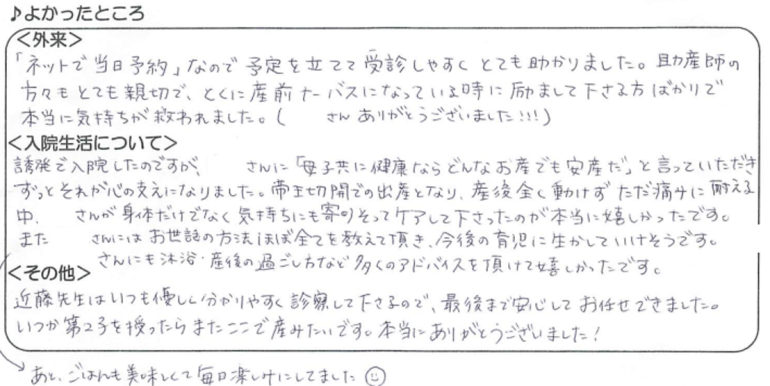 ♪よかったところ
＜外来＞
「ネットで当日予約」なので予定を立てて受診しやすくとても助かりました。助産師の
方々もとても親切で、とくに産前ナーバスになっている時に励まして下さる方ばかりで
本当に気持ちが救われました。(　　さんありがとうございました!!!)
＜入院生活について＞
誘発で入院したのですが、　　さんに「母子共に健康ならどんなお産でも安産だ」と言っていただき
ずっとそれが心の支えになりました。帝王切開での出産となり、産後全く動けずただ痛みに耐える
中、　　さんが身体だけでなく気持ちにも寄りそってケアして下さったのが本当に嬉しかったです。
また　　さんにはお世話の方法ほぼ全てを教えて頂き、今後の育児に生かしていけそうです。
さんにも沐浴・産後の過ごし方など多くのアドバイスを頂けて嬉しかったです。
＜その他＞
近藤先生はいつも優しく分かりやすく診察して下さるので、最後まで安心してお任せできました。
いつか第2子を授ったらまたここで産みたいです。本当にありがとうございました!
あと、ごはんも美味しくて毎日楽しみにしてました☺